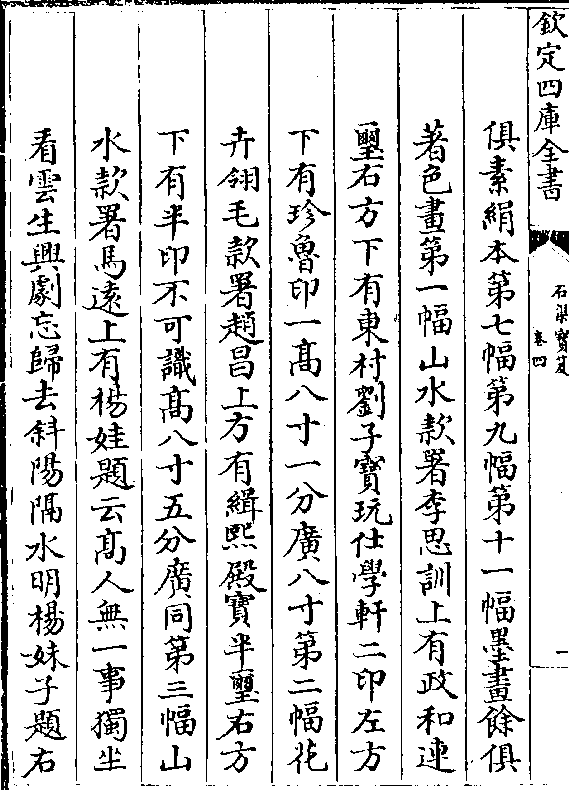 欽定四庫全書
石渠寶笈
卷四
一
俱素絹本第七幅第九幅第十一幅墨畫餘俱
著色畫第一幅山水款署李思訓上有政和連
璽右方下有東村劉子寶玩仕學軒二印左方
下有珍魯印一髙八寸一分廣八寸第二幅花
卉翎毛款署趙昌上方有緝熙殿寶半璽右方
下有半印不可識髙八寸五分廣同第三幅山
水款署馬遠上有楊娃題云髙人無一事獨坐
看雲生興劇忘歸去斜陽隔水明楊妹子題右